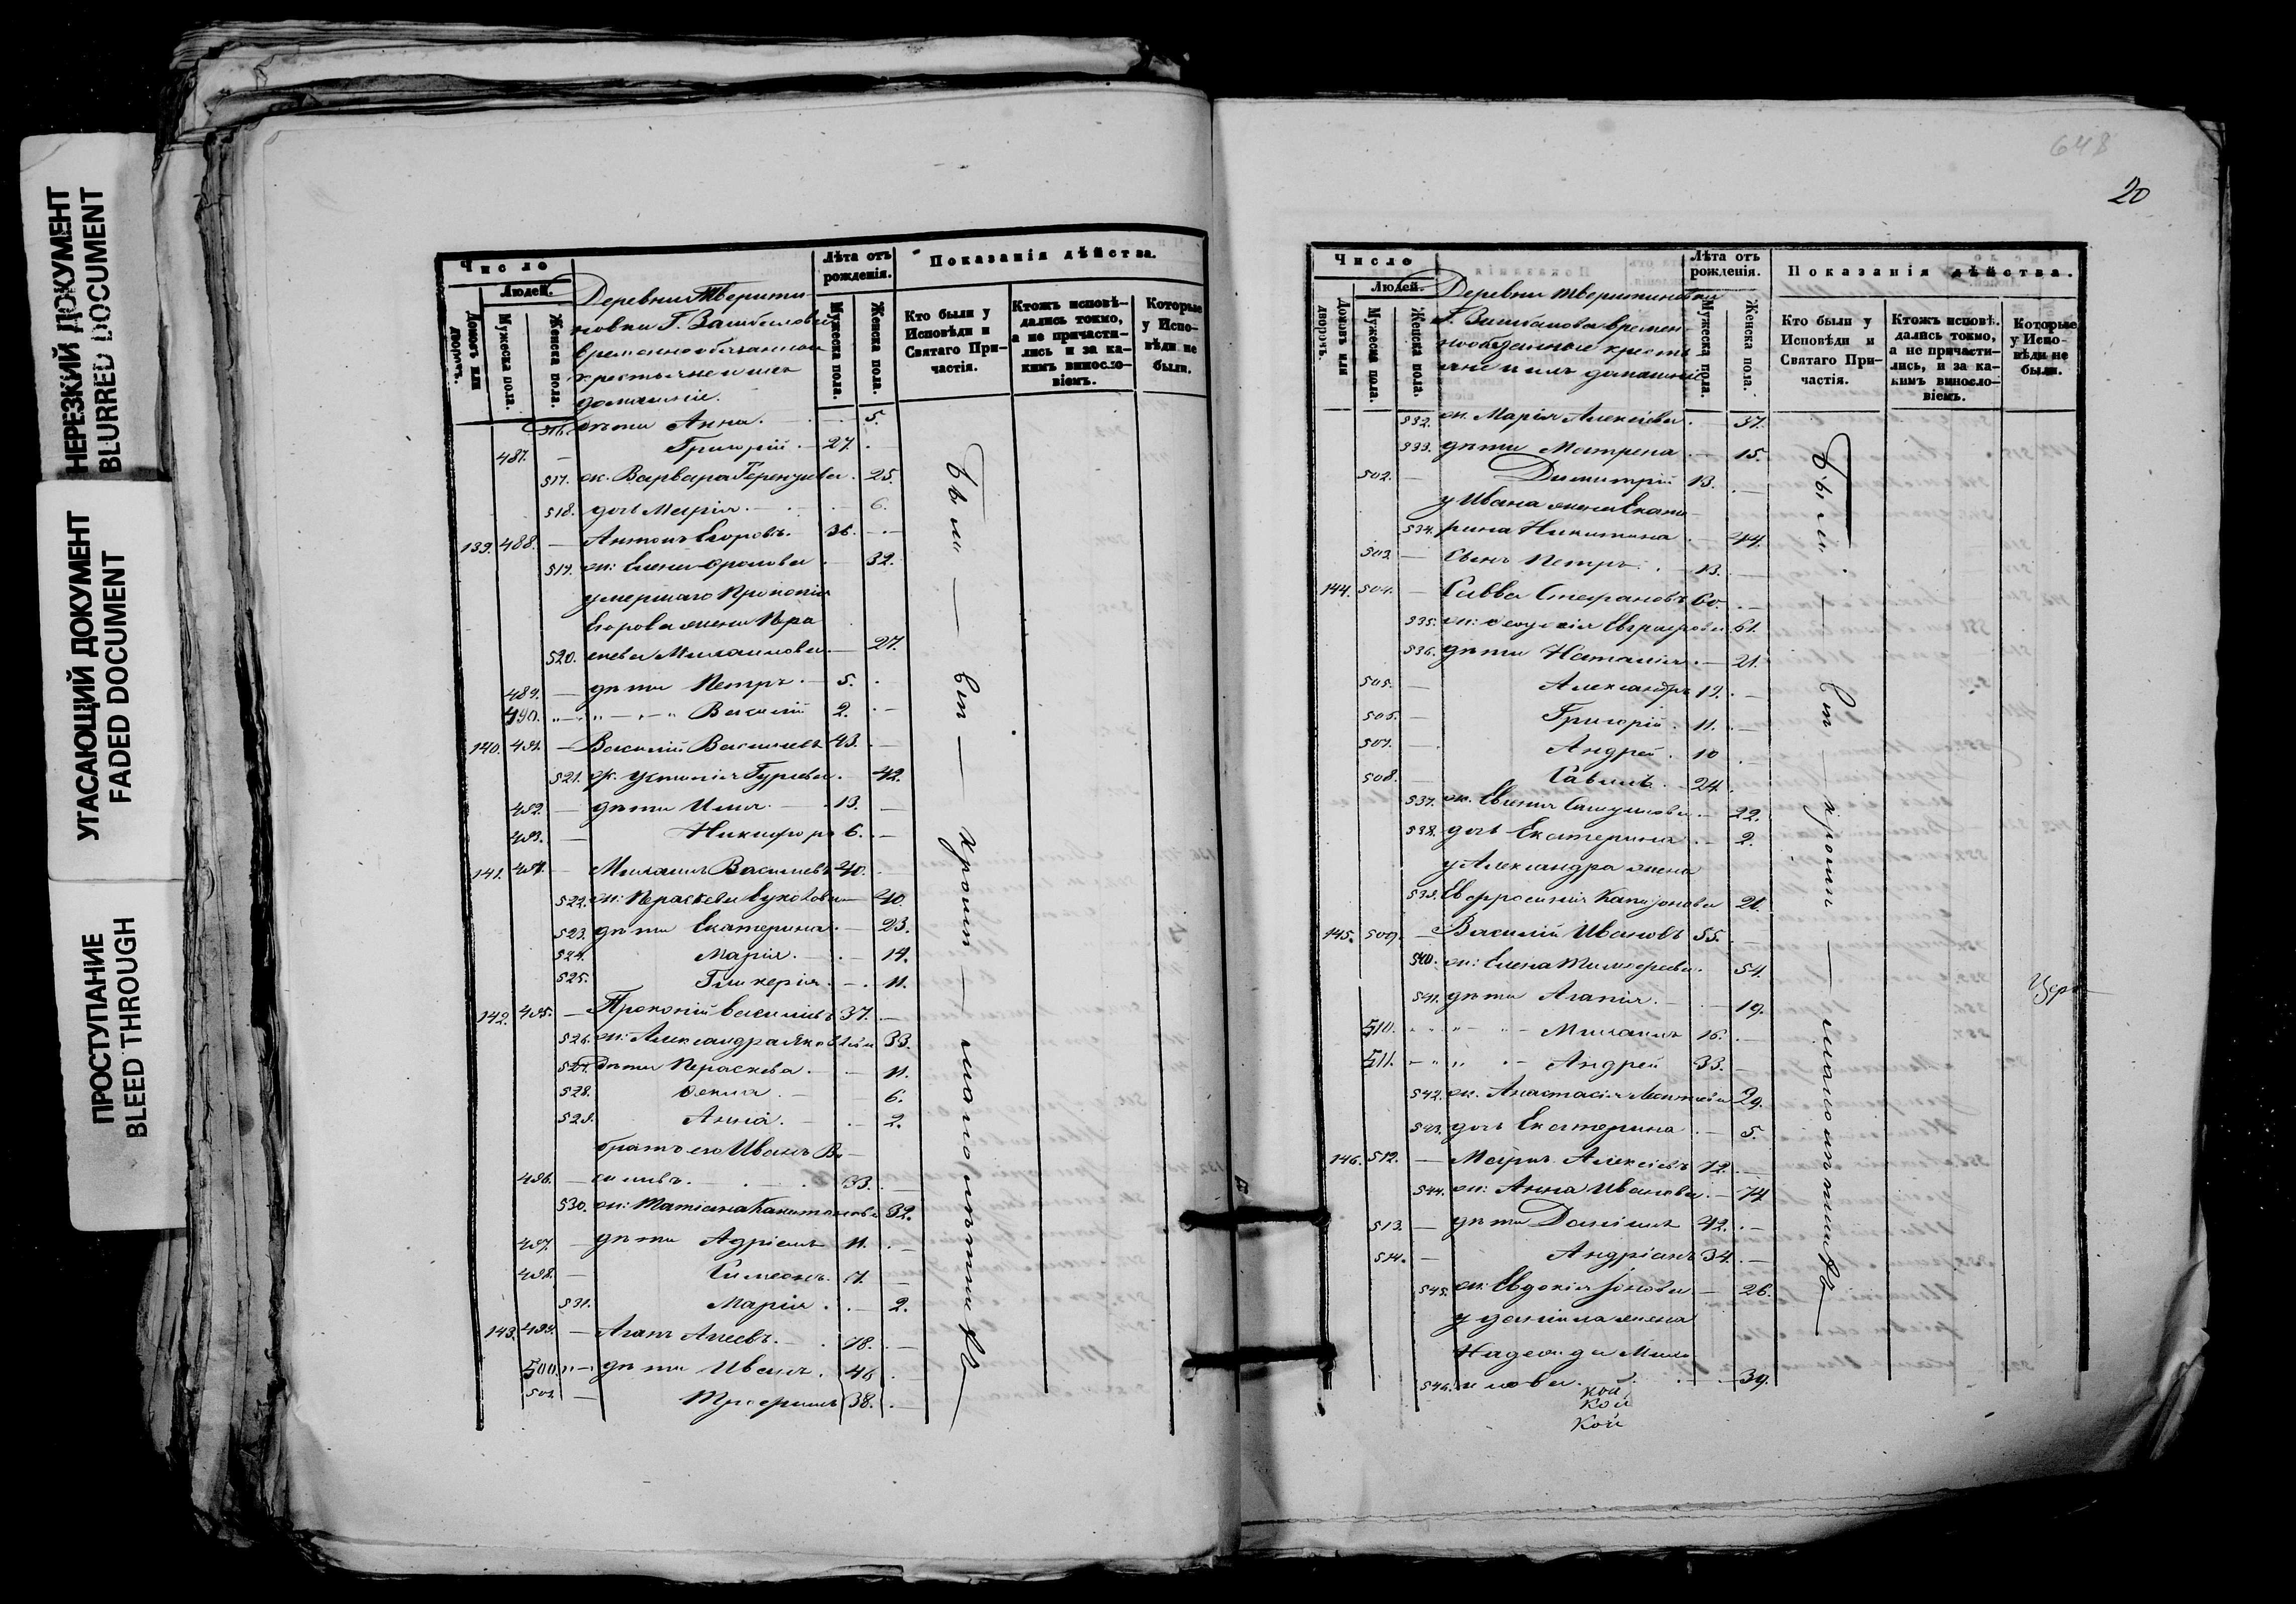 НЕРЕЗКИЙ ДОКУМЕНТ
BLURRED DOCUMENT
УГАСАЮЩИЙ ДОКУМЕНТ
FADED DOCUMENT
ПРОСТУПАНИЕ
BLEED THROUGH
Число
Людей.
Домовъ или дворовъ.
Мужеска пола.
Женска пола.
Деревни Тверити-
новки Г.
временнообязанные
крестьяне и ихъ
домашніе.
Лѣта отъ рожденія.
Мужеска пола.
Женска пола.
Показанія дѣйства.
Кто были у Исповѣди и Святаго Причастія.
Ктожъ исповѣдались токмо, а не причастились и за какимъ винословіемъ.
Которые у Исповѣди не были.
516. дѣти Анна. 5.
487. — Григорій. 27.
517. ж. Варвара Терентьева. 25.
518. дочь Марія. 6.
139. 488. — Антонъ Егоровъ. 36.
519. ж: Елена Фролова. 32.
умершаго Прокопія
Егорова жена Пара
520. скева Михаилова. 27.
489. — дѣти Петръ. 5.
490. Василій 2.
140. 491. — Василій Васильевъ 43.
521. ж. Устинія Гурьева. 42.
492. — дѣти Илья. 13.
493. — Никифоръ 6.
141. 494. — Михаилъ Васильевъ 40.
522. ж: Параскева 40.
523. дѣти Екатерина. 23.
524. Марія. 14.
525. Гликерія. 11.
142. 495. — Прокопій Васильевъ 37.
526. ж: Александра Яковлева 33.
527. дѣти Параскева. 11.
528. Фекла. 6.
529. Анна. 2.
братъ его Иванъ Ва-
496. — сильевъ. 33.
530. ж: Татіана Капитонова 32.
497. — дѣти Адріанъ 11.
498. — Симеонъ. 7.
531. Марія. 2.
143. 499. — Агапъ 78.
500. дѣти Иванъ. 46
501. — Трофимъ 38.
Были — всѣ — кромѣ — малолѣтнихъ
648
20
Число
Людей.
Домовъ или дворовъ.
Мужеска пола.
Женска пола.
Деревни Тверитиновки
Г. времен-
нообязанные кресть
яне и ихъ домашніе
Лѣта отъ рожденія.
Мужеска пола.
Женска пола.
Показанія дѣйства.
Кто были у Исповѣди и Святаго Причастія.
Ктожъ исповѣдались токмо, а не причастились, и за какимъ винословіемъ.
Которые у Исповѣди не были.
532. ж. Марія Алексіева. 37.
533. дѣти Матрена. 15.
502. — Димитрій 13.
у Ивана жена Екате
534. рина Никитина. 44.
503. — Сынъ Петръ. 13.
144. 504. — Савва Стефановъ 60.
535. ж: Феодосія 61.
536. дѣти Наталія. 21.
505. — Александръ 19.
506. — Григорій. 11.
507. — Андрей. 10
508. — Савинъ. 24.
537. ж. Евгенія 22.
538. дочь Екатерина. 2.
у Александра жена
539. Евфросинія 21.
145. 509. — Василій Ивановъ 55.
540. ж: Елена Тимофеева. 54.
541. дѣти Агапія. 19.
510. Михаилъ 16.
511. Андрей 33.
542. ж. Анастасія 29.
543. дочь Екатерина. 5.
146. 512. — Алексіевъ 72.
544. ж: Анна Иванова. 74
513. — дѣти Даніилъ 42.
514. — Андріанъ 34.
545. ж: Евдокія Іонова 26.
у Даніила жена
Надежда Миха
546. илова. 39.
Были — всѣ — кромѣ — малолѣтнихъ
Кой
Кой
Кой